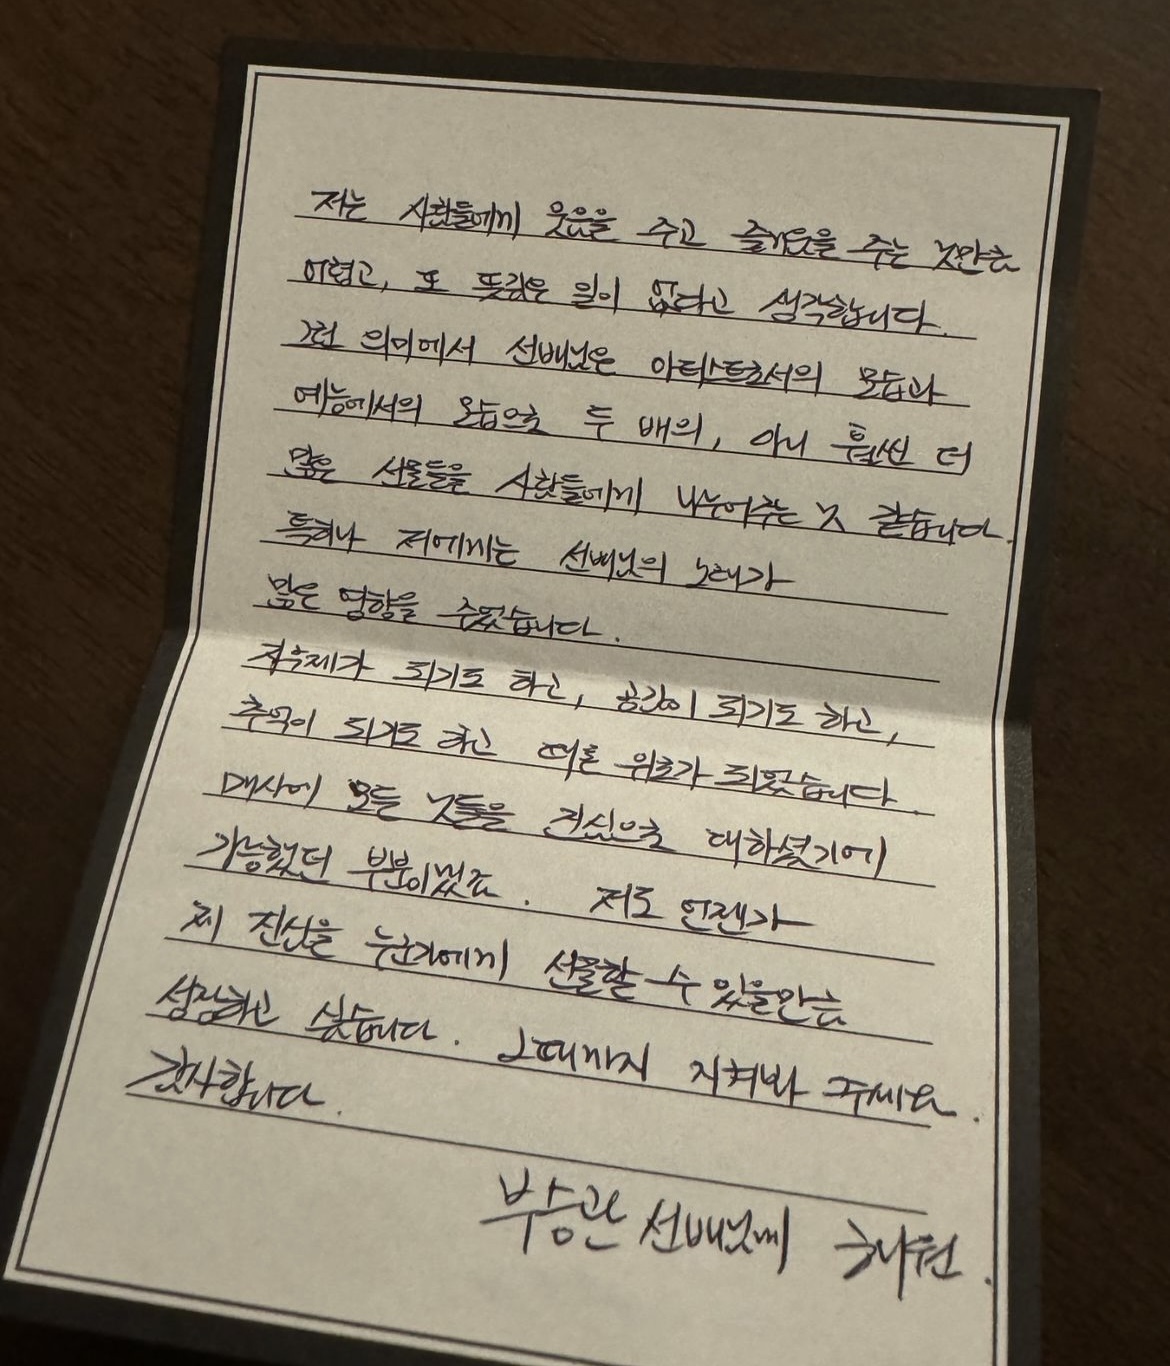 저는 사람들에게 웃음을 주고 즐거움을 주는 것만큼
어렵고, 또 뜻깊은 일이 없다고 생각합니다.
그런 의미에서 선배님은 아티스트로서의 모습과
예능에서의 모습으로 두 배의, 아니 훨씬 더
많은 선물들을 사람들에게 나누어주는 것 같습니다.
특히나 저에게는 선배님의 노래가
많은 영향을 주었습니다.
자유제가 되기도 하고, 공감이 되기도 하고,
추억이 되기도 하고 때론 위로가 되었습니다.
매사에 모든 것들을 진심으로 대하셨기에
가능했던 부분이겠죠. 저도 언젠가
제 진심을 누군가에게 선물할 수 있을만큼
성장하고 싶습니다. 그때까지 지켜봐 주세요.
감사합니다.
부승관 선배님께